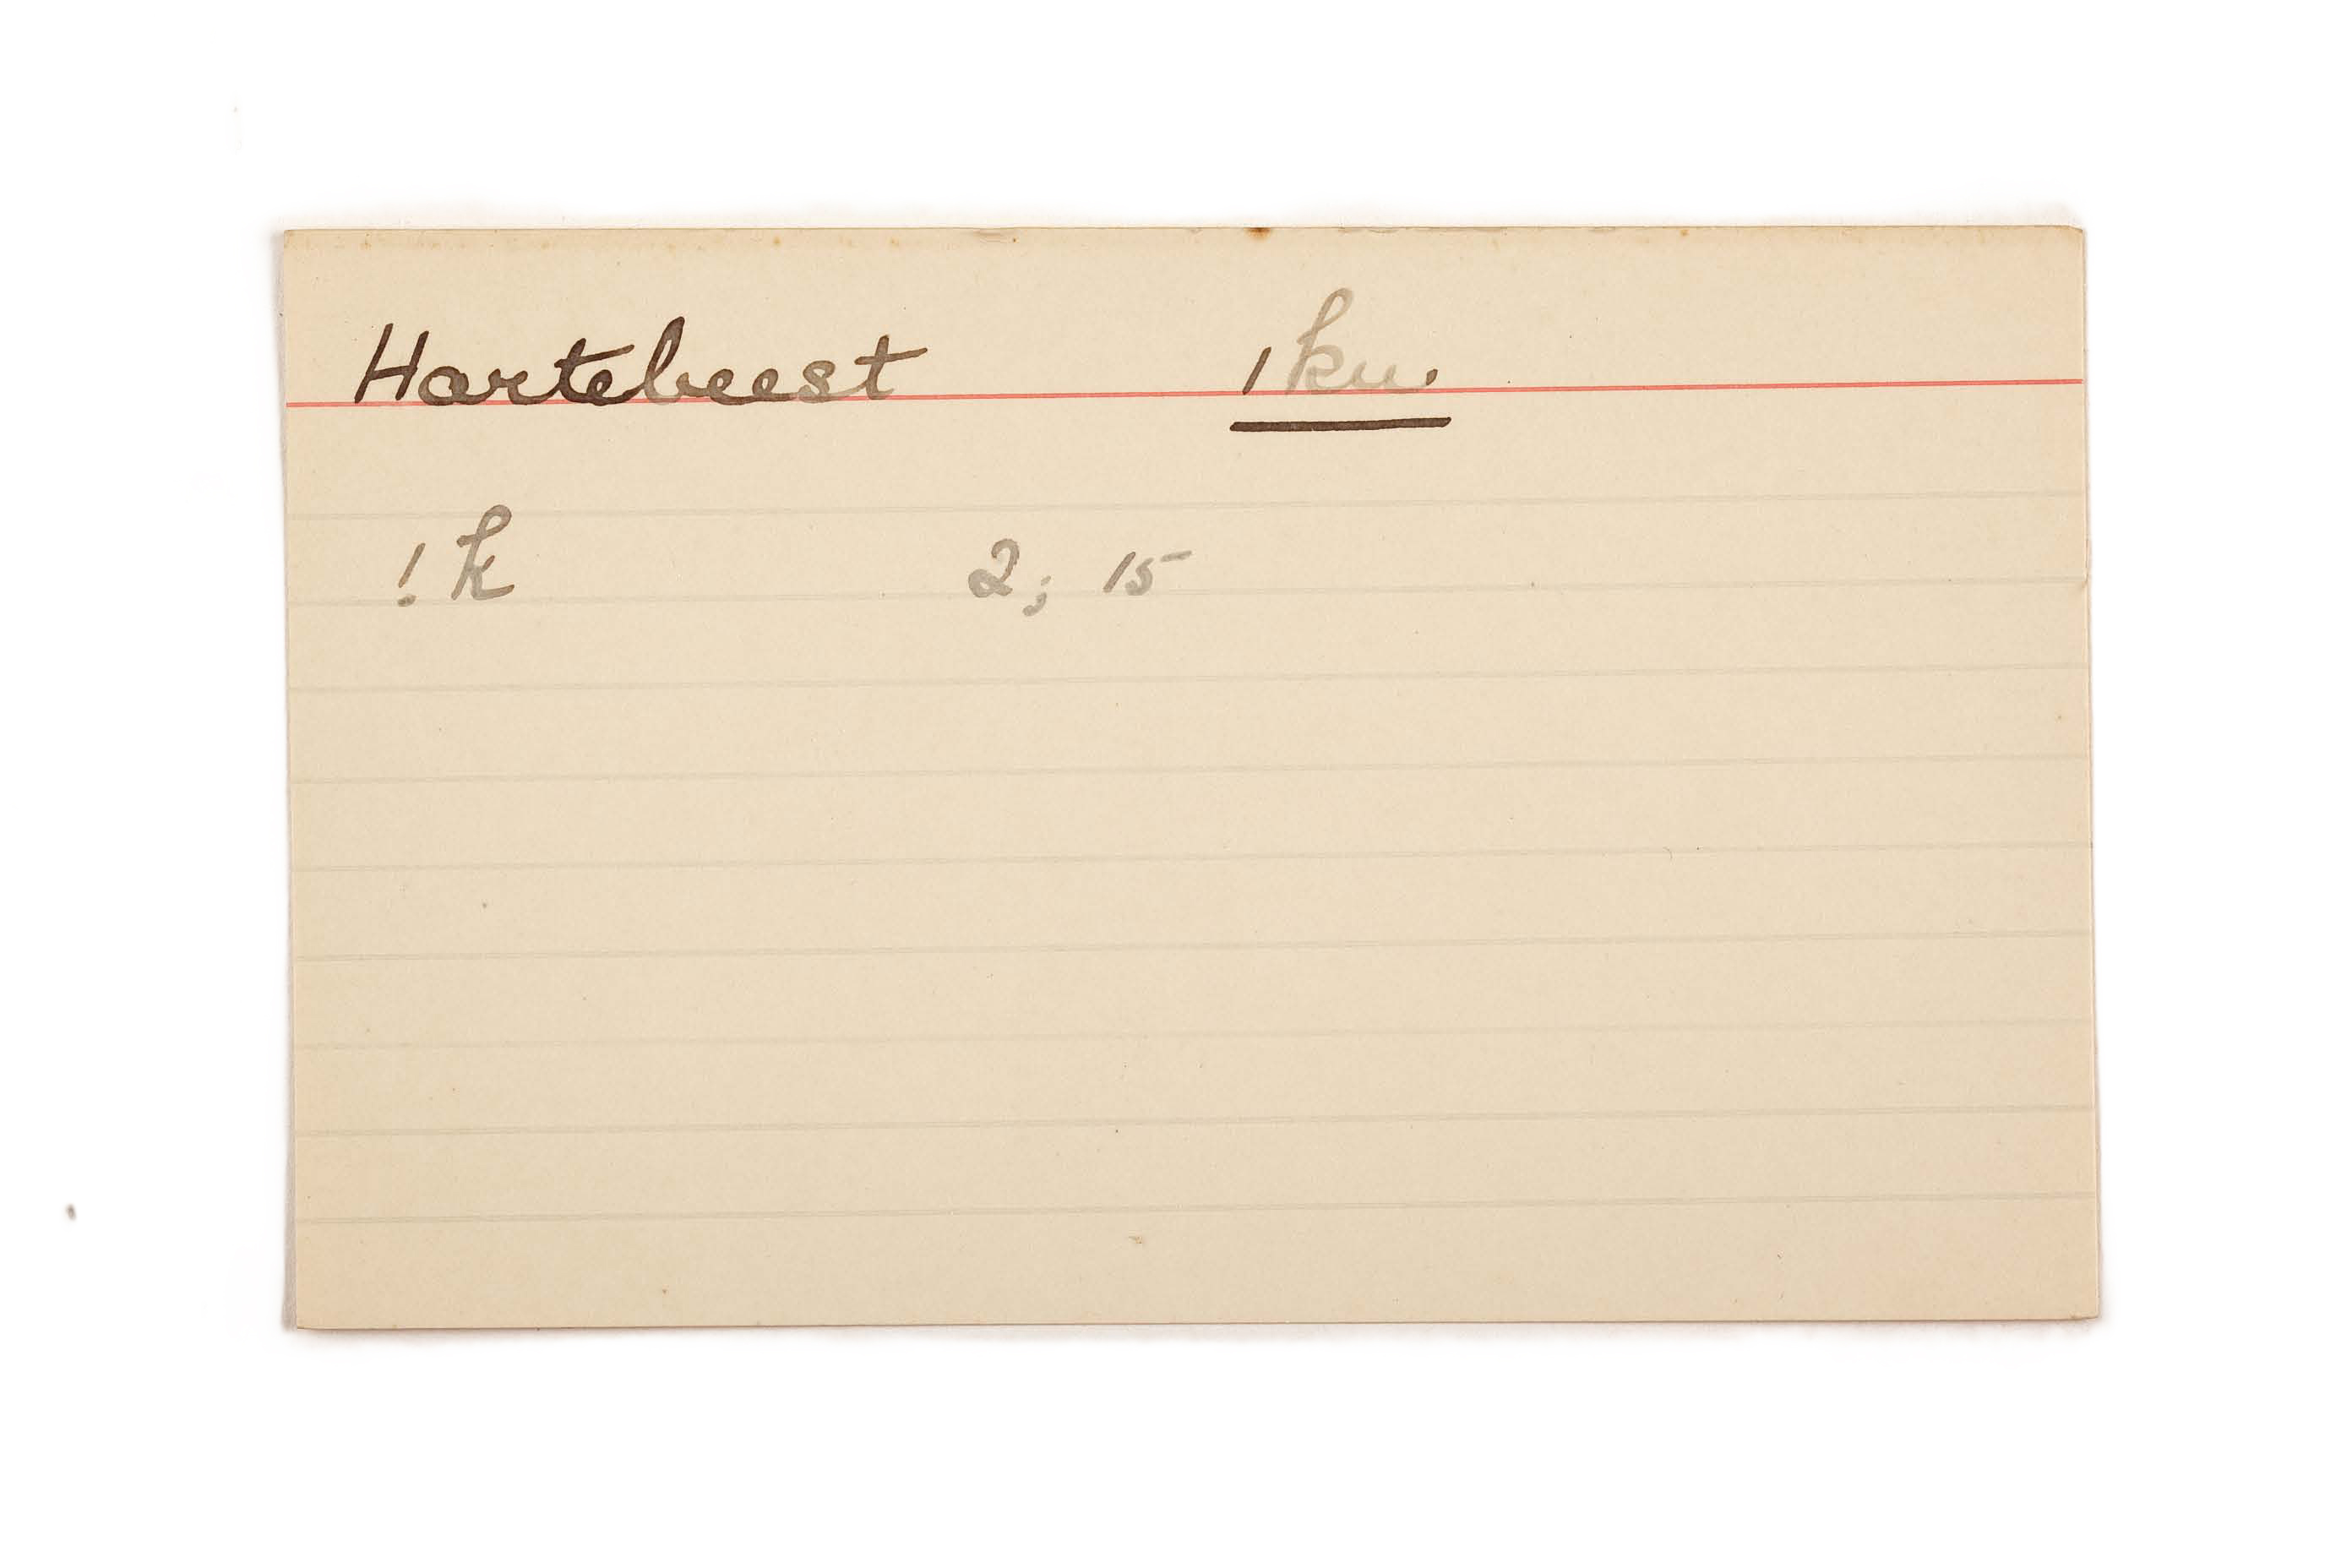 Hartebeest /ku.
!k 2; 15